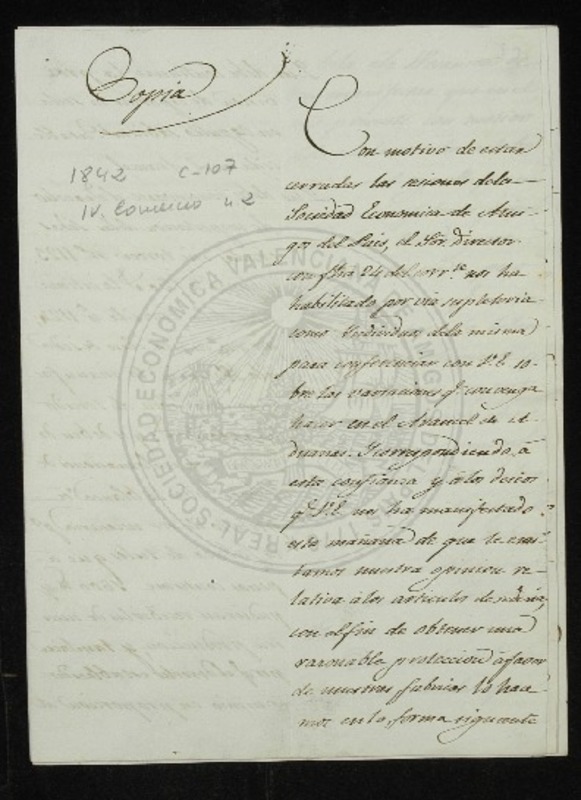 Copia
1842 C-107
IV. Comercio n 2
Con motivo de estar
cerradas las sesiones dela
Sociedad Economica de Ami-
gos del Pais, el Sor. Director
con fha 24 del corr.te nos ha
habilitado por via supletoria
como Individuos dela misma
para conferenciar con V.E. so-
bre las variaciones q.e convenga
hacer en el Arancel de A-
duanas. Y correspondiendo á
esta confianza y álos deseos
q.e V.E. nos ha manifestado
esta mañana de que le emi-
tamos nuestra opinion re-
lativa álos articulos de
con el fin de obtener una
razonable proteccion á favor
de nuestras fabricas lo hace-
mos en la forma siguiente
REAL SOCIEDAD ECONOMICA VALENCIANA DE AMIGOS DEL PAIS